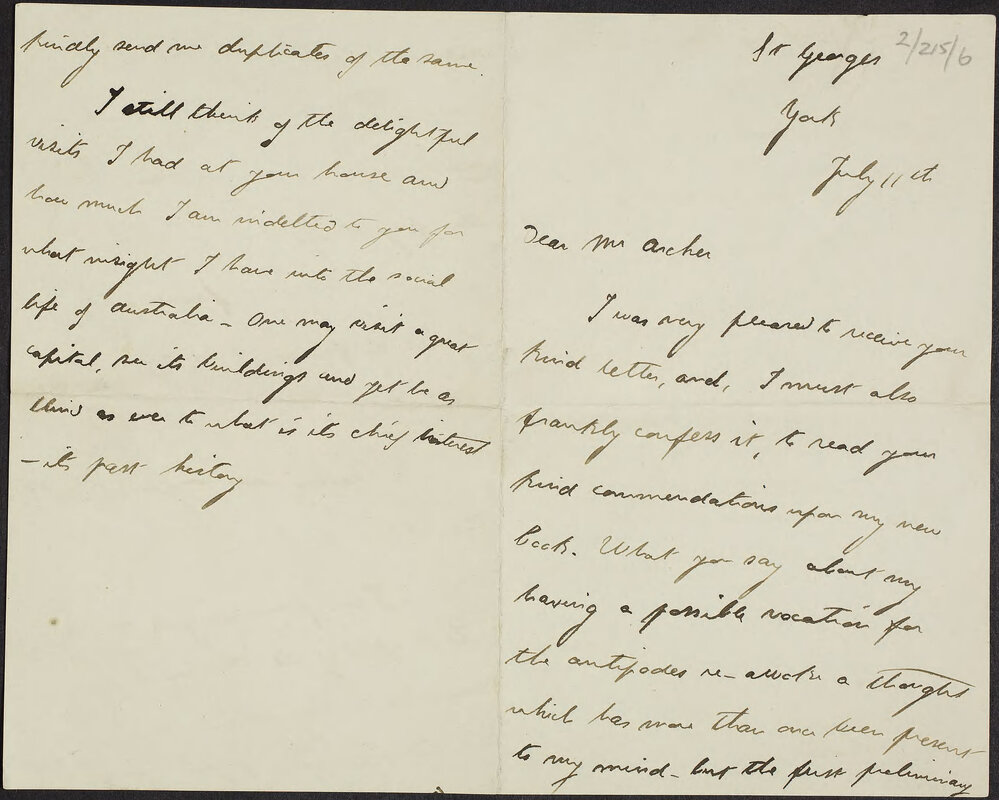 2/215/6
St Georges
York
July 11th
Dear Mr Archer
I was very pleased to receive your
kind letter, and, I must also
frankly confess it, to read your
kind commendations upon my new
book. What you say about my
having a possible vocation for
the antipodes re-awoke a thought
which has more than once been present
to my mind - but the first preliminary
kindly send me duplicates of the same.
I still think of the delightful
visits I had at your house and
how much I am indebted to you for
what insight I have into the social
life of Australia - One may visit a great
capital, see its buildings and yet be as
blind as ever to what is its chief interest
- its past history